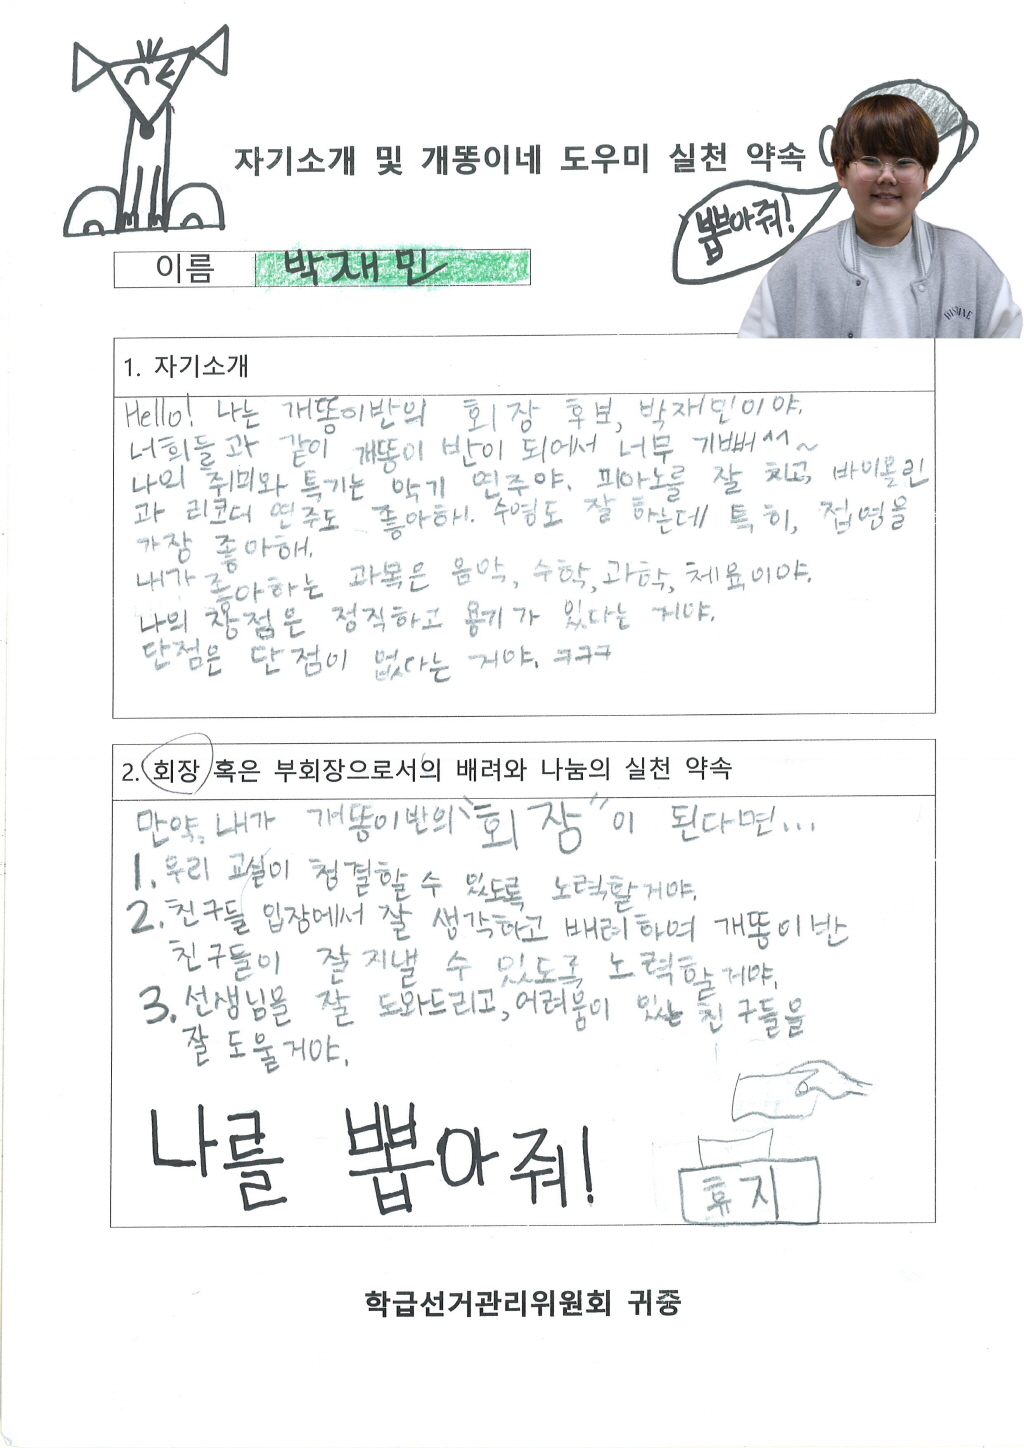 자기소개 및 개똥이네 도우미 실천 약속
뽑아줘!
이름 박재민
1. 자기소개
Hello! 나는 개똥이반의 회장 후보, 박재민이야.
너희들과 같이 개똥이 반이 되어서 너무 기뻐^^~
나의 취미와 특기는 악기 연주야. 피아노를 잘 치고, 바이올린
과 리코더 연주도 좋아해. 수영도 잘 하는데 특히, 접영을
가장 좋아해.
내가 좋아하는 과목은 음악, 수학, 과학, 체육이야.
나의 장점은 정직하고 용기가 있다는 거야.
단점은 단점이 없다는 거야. ㅋㅋㅋ
2. 회장 혹은 부회장으로서의 배려와 나눔의 실천 약속
만약, 내가 개똥이반의 "회장"이 된다면...
1. 우리 교실이 청결할 수 있도록 노력할거야.
2. 친구들 입장에서 잘 생각하고 배려하며 개똥이반
친구들이 잘 지낼 수 있도록 노력할거야.
3. 선생님을 잘 도와드리고, 어려움이 있는 친구들을
잘 도울거야.
나를 뽑아줘!
휴지
학급선거관리위원회 귀중